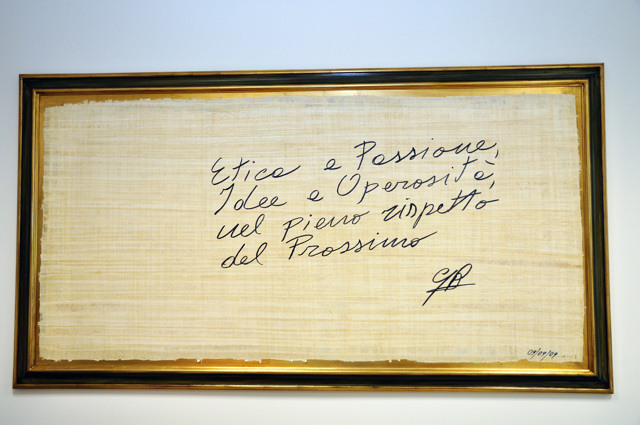 Etica e Passione,
Idee e Operosità,
nel pieno rispetto
del Prossimo
09/09/09